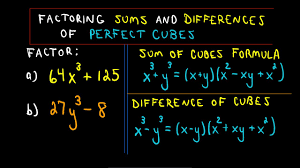 FACTORING SUMS AND DIFFERENCES
OF PERFECT CUBES
FACTOR:
a) 64x³ + 125
b) 27y³ - 8
SUM OF CUBES FORMULA
x³ + y³ = (x+y)(x² - xy + x²)
DIFFERENCE OF CUBES
x³ - y³ = (x-y)(x² + xy + x²)